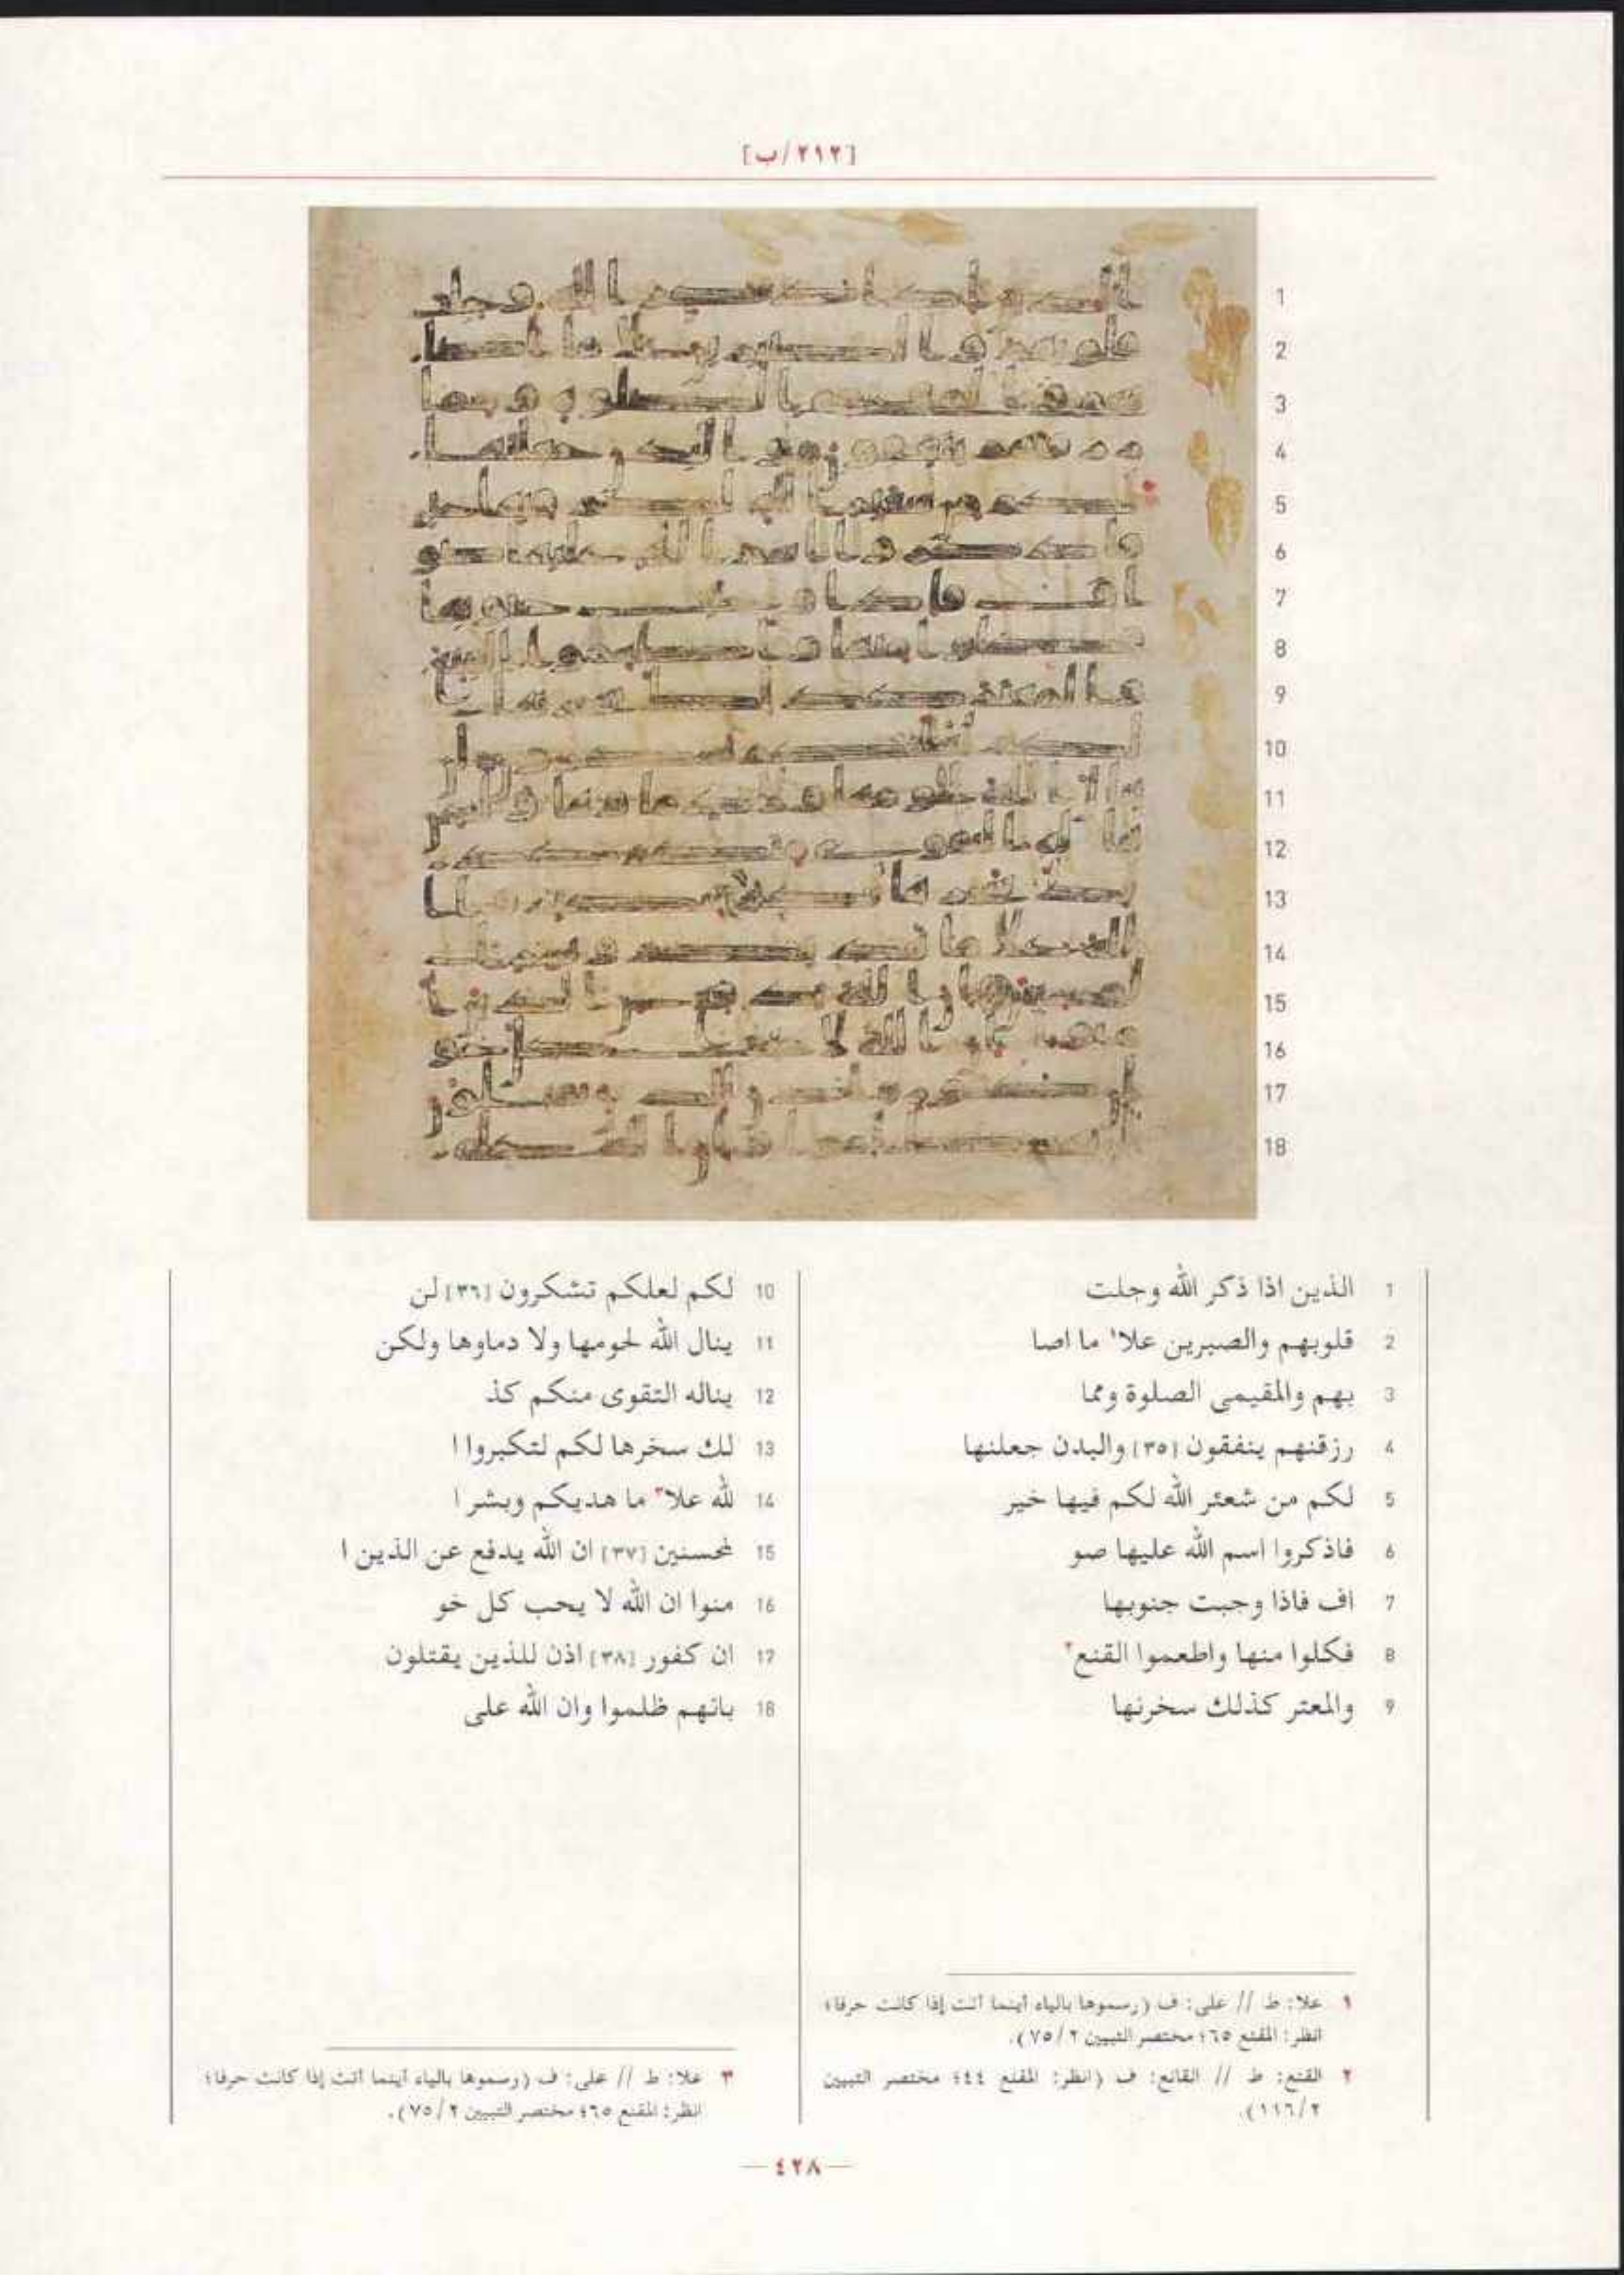 [٢١٢/ب]
1 الذين اذا ذكر الله وجلت
2 قلوبهم والصبرين علا١ ما اصا
3 بهم والمقيمى الصلوة ومما
4 رزقنهم ينفقون [٣٥] والبدن جعلنها
5 لكم من شعئر الله لكم فيها خير
6 فاذكروا اسم الله عليها صو
7 اف فاذا وجبت جنوبها
8 فكلوا منها واطعموا القنع٢
9 والمعتر كذلك سخرنها
10 لكم لعلكم تشكرون [٣٦] لن
11 ينال الله لحومها ولا دماوها ولكن
12 يناله التقوى منكم كذ
13 لك سخرها لكم لتكبروا ا
14 لله علا٣ ما هديكم وبشر ا
15 لمحسنين [٣٧] ان الله يدفع عن الذين ا
16 منوا ان الله لا يحب كل خو
17 ان كفور [٣٨] اذن للذين يقتلون
18 بانهم ظلموا وان الله على
١ علا: ط // على: ف (رسموها بالياء أينما أتت إذا كانت حرفا؛
انظر: المقنع ٦٥؛ مختصر التبيين ٢/ ٧٥).
٢ القنع: ط // القانع: ف (انظر: المقنع ٤٤؛ مختصر التبيين
٢/ ١١٦).
٣ علا: ط // على: ف (رسموها بالياء أينما أتت إذا كانت حرفا؛
انظر: المقنع ٦٥؛ مختصر التبيين ٢/ ٧٥).
— ٤٢٨ —